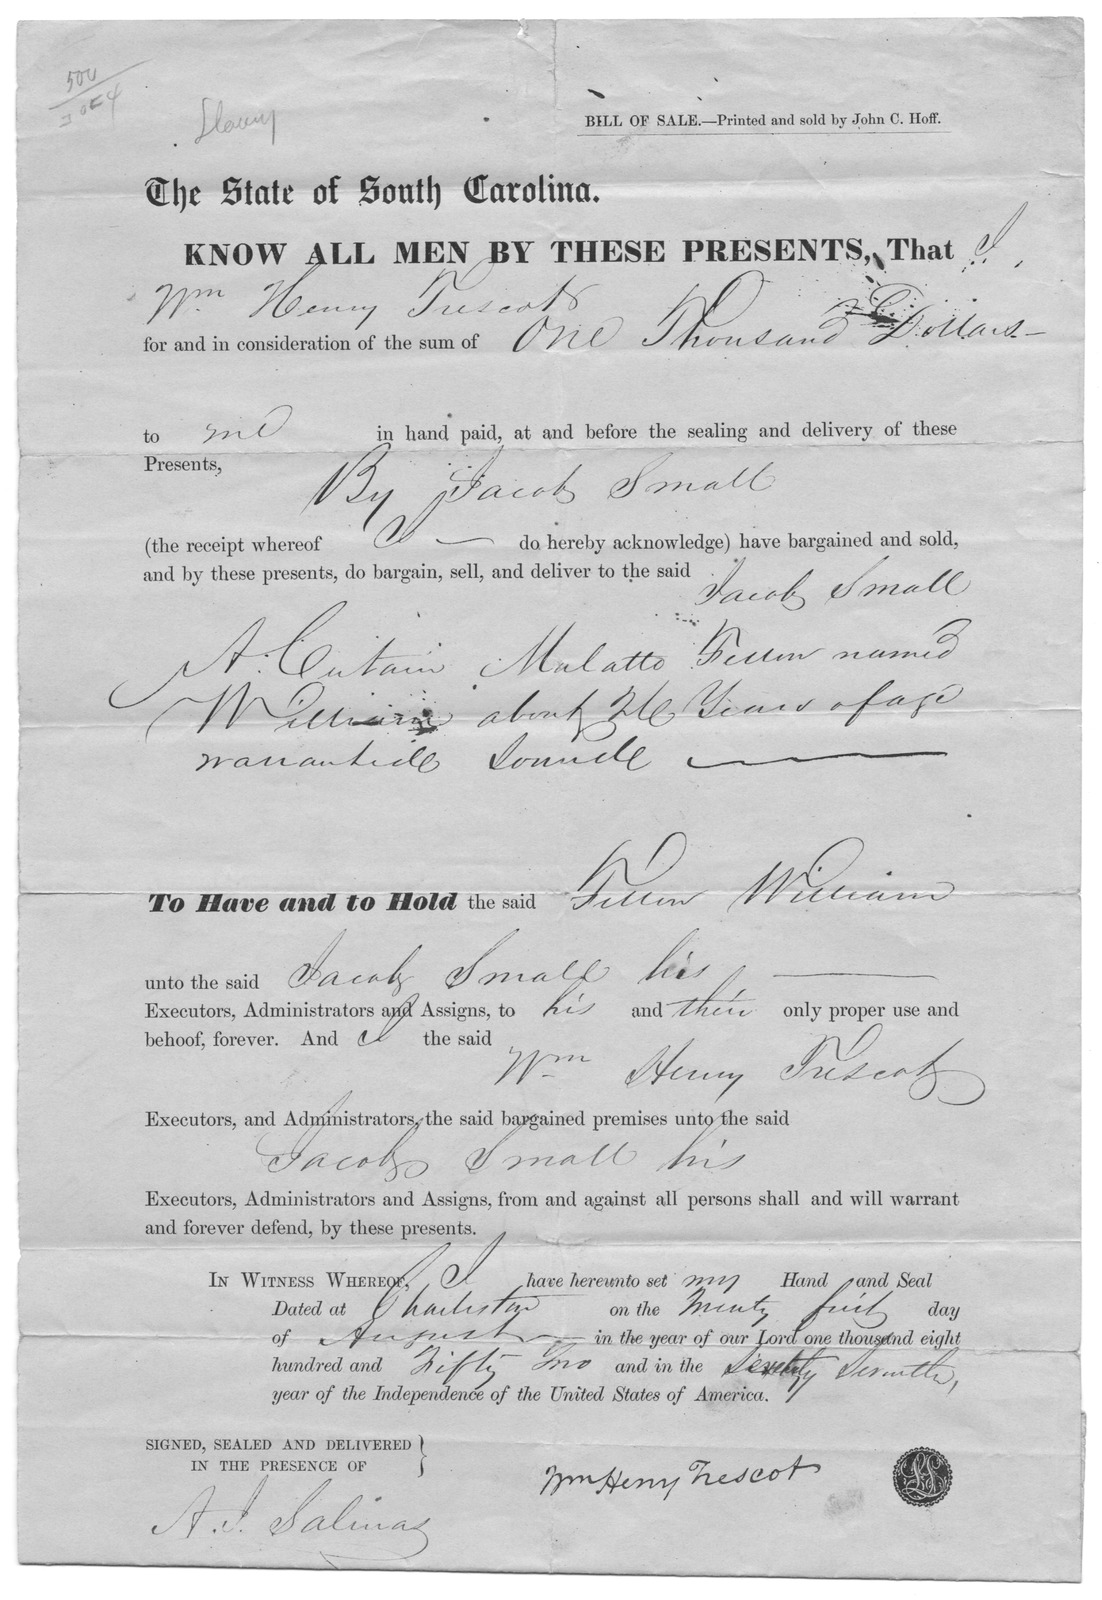 500
Slavery
BILL OF SALE.—Printed and sold by John C. Hoff.
The State of South Carolina.
KNOW ALL MEN BY THESE PRESENTS, That I
Wm Henry Trescot
for and in consideration of the sum of One Thousand Dollars
to me in hand paid, at and before the sealing and delivery of these
Presents,
By Jacob Small
(the receipt whereof I do hereby acknowledge) have bargained and sold,
and by these presents, do bargain, sell, and deliver to the said
Jacob Small
A Certain Mulatto Fellow named
William about 26 Years of age
warranted Sound
To Have and to Hold the said Fellow William
unto the said Jacob Small his
Executors, Administrators and Assigns, to his and their only proper use and
behoof, forever. And I the said
Wm Henry Trescot
Executors, and Administrators, the said bargained premises unto the said
Jacob Small his
Executors, Administrators and Assigns, from and against all persons shall and will warrant
and forever defend, by these presents.
IN WITNESS WHEREOF, I have hereunto set my Hand and Seal
Dated at Charleston on the Twenty first day
of August in the year of our Lord one thousand eight
hundred and Fifty Two and in the Seventy Seventh,
year of the Independence of the United States of America.
SIGNED, SEALED AND DELIVERED
IN THE PRESENCE OF
Wm Henry Trescot
LS
A. J. Salinas